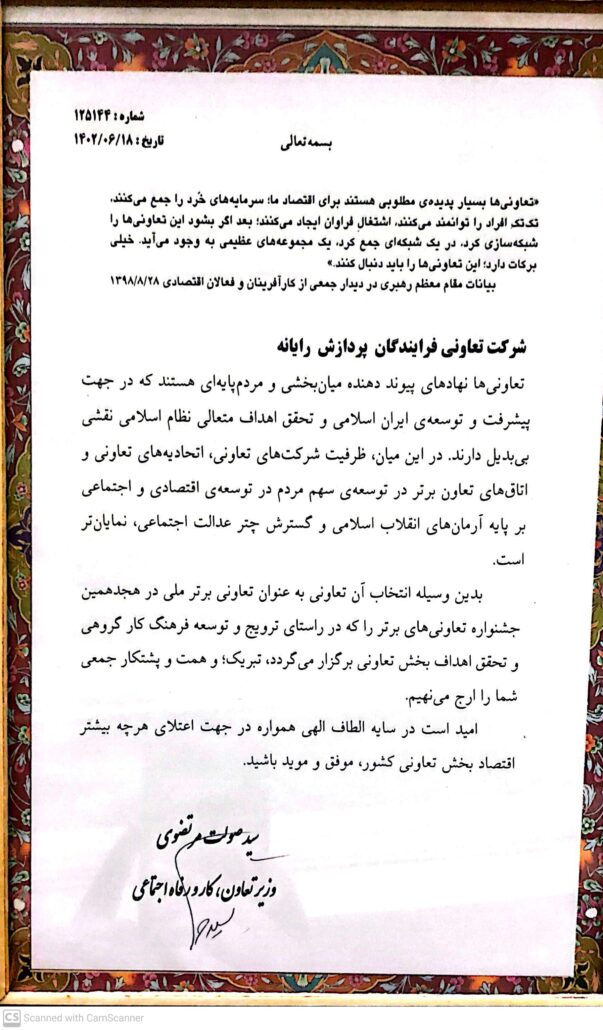 شماره: ۱۲۵۱۴۴
تاریخ: ۱۴۰۲/۰۶/۱۸
بسمه تعالی
«تعاونی‌ها بسیار پدیده‌ی مطلوبی هستند برای اقتصاد ما؛ سرمایه‌های خُرد را جمع می‌کنند،
تک‌تک افراد را توانمند می‌کنند، اشتغال فراوان ایجاد می‌کنند؛ بعد اگر بشود این تعاونی‌ها را
شبکه‌سازی کرد، در یک شبکه‌ای جمع کرد، یک مجموعه‌های عظیمی به وجود می‌آید. خیلی
برکات دارد؛ این تعاونی‌ها را باید دنبال کنند.»
بیانات مقام معظم رهبری در دیدار جمعی از کارآفرینان و فعالان اقتصادی ۱۳۹۸/۸/۲۸
شرکت تعاونی فرایندگان پردازش رایانه
تعاونی‌ها نهادهای پیوند دهنده میان‌بخشی و مردم‌پایه‌ای هستند که در جهت
پیشرفت و توسعه‌ی ایران اسلامی و تحقق اهداف متعالی نظام اسلامی نقشی
بی‌بدیل دارند. در این میان، ظرفیت شرکت‌های تعاونی، اتحادیه‌های تعاونی و
اتاق‌های تعاون برتر در توسعه‌ی سهم مردم در توسعه‌ی اقتصادی و اجتماعی
بر پایه آرمان‌های انقلاب اسلامی و گسترش چتر عدالت اجتماعی، نمایان‌تر
است.
بدین وسیله انتخاب آن تعاونی به عنوان تعاونی برتر ملی در هجدهمین
جشنواره تعاونی‌های برتر را که در راستای ترویج و توسعه فرهنگ کار گروهی
و تحقق اهداف بخش تعاونی برگزار می‌گردد، تبریک؛ و همت و پشتکار جمعی
شما را ارج می‌نهیم.
امید است در سایه الطاف الهی همواره در جهت اعتلای هرچه بیشتر
اقتصاد بخش تعاونی کشور، موفق و موید باشید.
سید صولت مرتضوی
وزیر تعاون، کار و رفاه اجتماعی
CS Scanned with CamScanner